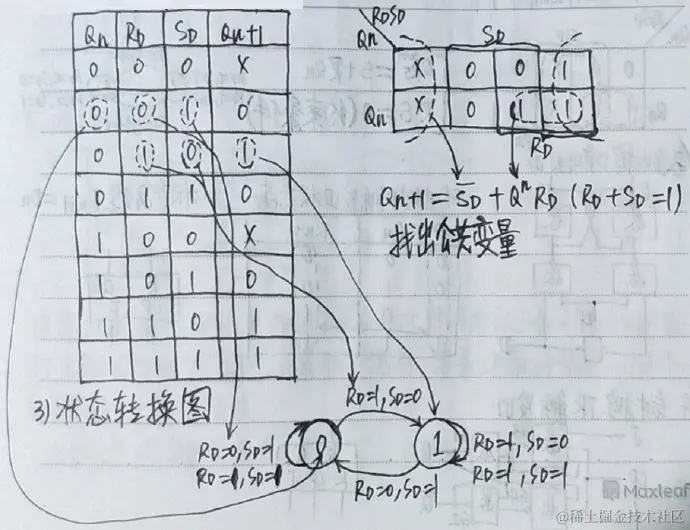 Qn RD SD Qn+1
0 0 0 X
0 0 1 0
0 1 0 1
0 1 1 0
1 0 0 X
1 0 1 0
1 1 0 1
1 1 1 1
RDSD
Qn
SD
X 0 0 1
Qn X 0 1 1
RD
Qn+1 = S̅D + Qⁿ RD (RD + SD = 1)
找出公共变量
3) 状态转换图
RD=1, SD=0
0
1
RD=0, SD=1
RD=1, SD=0
RD=1, SD=1
RD=0, SD=1
Maxleaf
@稀土掘金技术社区